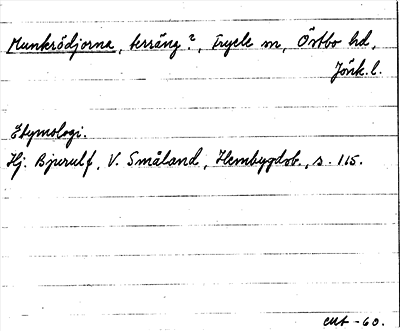 Munkrödjorna, terräng?, Tryele sn, Östbo hd,
Jönk. l.
Etymologi.
Hj. Bjurulf, V. Småland, Hembygdsb., s. 115.
-60.